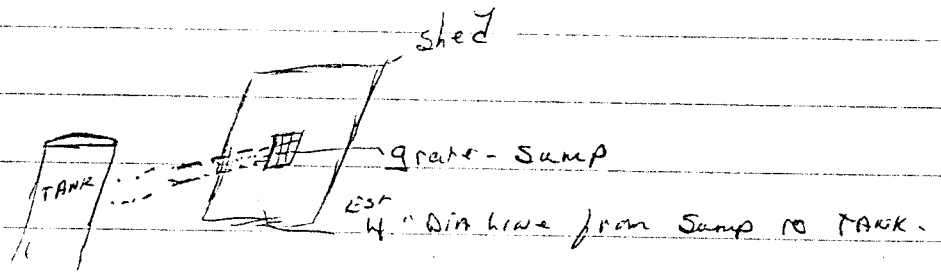 shed
TANK
grate - Sump
EST
4" DIA LINE from Sump TO TANK.